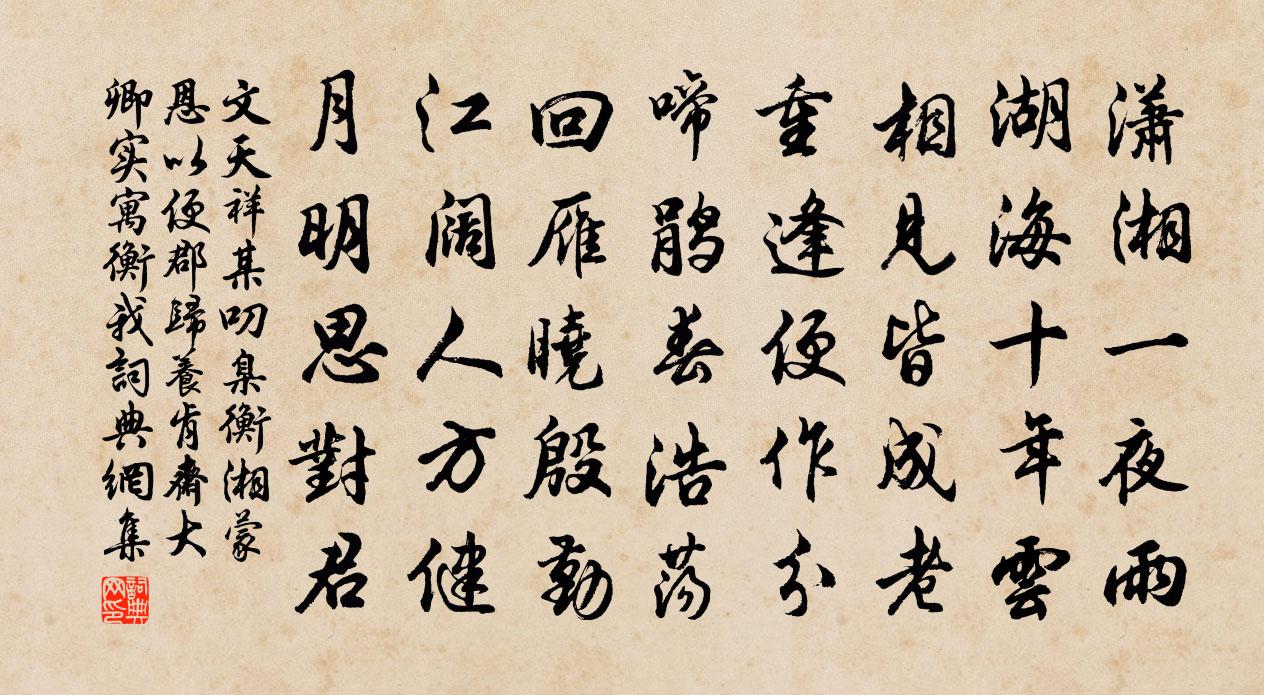 潇湘一夜雨
湖海十年雲
相見皆成老
重逢便作分
啼鹃春浩荡
回雁曉殷勤
江阔人方健
月明思對君
文天祥某叨臬衡湘蒙
恩以便郡歸養肯齋大
卿实寓衡我詞典網集
詞典
网印